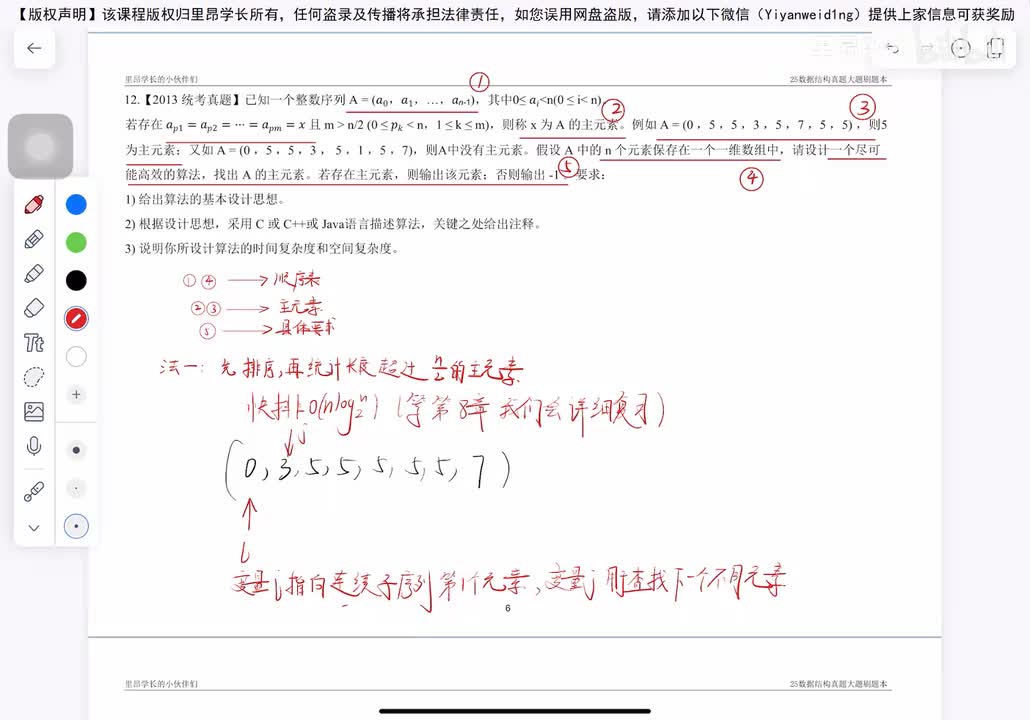 【版权声明】该课程版权归里昂学长所有，任何盗录及传播将承担法律责任，如您误用网盘盗版，请添加以下微信（Yiyanweid1ng）提供上家信息可获奖励
里昂学长的小伙伴们
25数据结构真题大题刷题本
①
12.【2013 统考真题】已知一个整数序列 A = (a₀，a₁，…，aₙ₋₁)，其中0≤ aᵢ<n(0 ≤ i< n)
② ③
若存在 aₚ₁ = aₚ₂ = ⋯ = aₚₘ = x 且 m > n/2 (0 ≤ pₖ < n，1 ≤ k ≤ m)，则称 x 为 A 的主元素。例如 A = (0，5，5，3，5，7，5，5)，则5
为主元素；又如 A = (0，5，5，3，5，1，5，7)，则A中没有主元素。假设 A 中的 n 个元素保存在一个一维数组中，请设计一个尽可
能高效的算法，找出 A 的主元素。若存在主元素，则输出该元素；否则输出 -1。要求：
⑤ ④
1) 给出算法的基本设计思想。
2) 根据设计思想，采用 C 或 C++或 Java语言描述算法，关键之处给出注释。
3) 说明你所设计算法的时间复杂度和空间复杂度。
① ④ → 顺序表
②③ → 主元素
⑤ → 具体要求
法一：先排序,再统计长度超过 n/2 的主元素
快排 O(nlog₂n) (等第8章 我们会详细复习)
j
(0, 3, 5, 5, 5, 5, 5, 7)
i
变量i指向连续子序列第1个元素, 变量j用于查找下一个不同元素
6
里昂学长的小伙伴们
25数据结构真题大题刷题本
Tt